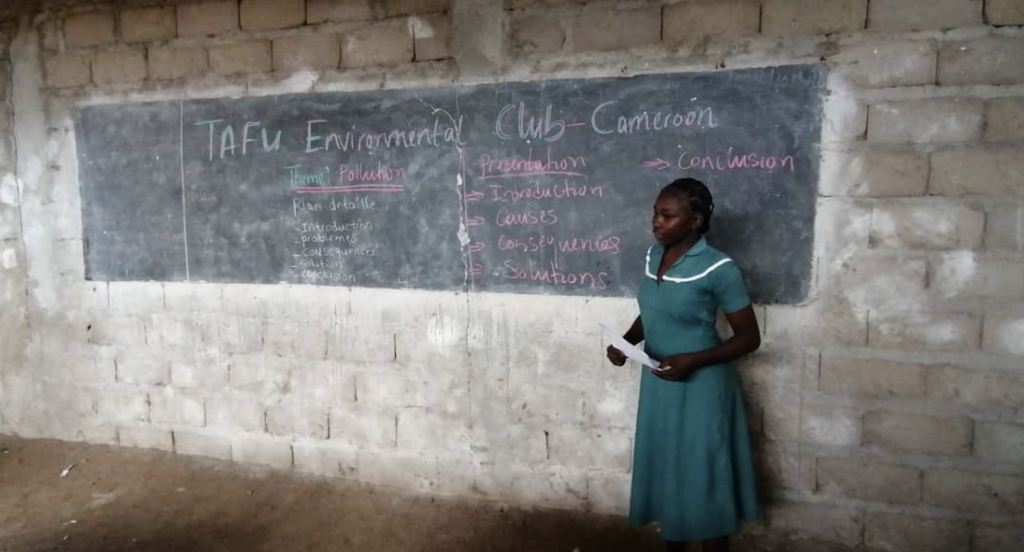 TAFU Environmental Club - Cameroon
Theme: Pollution
Plan detaille
- Introduction
- problemes
- consequences
- solution
- conclusion
Presentation
⇒ Introduction
⇒ Causes
⇒ Consequences
⇒ Solutions
⇒ Conclusion